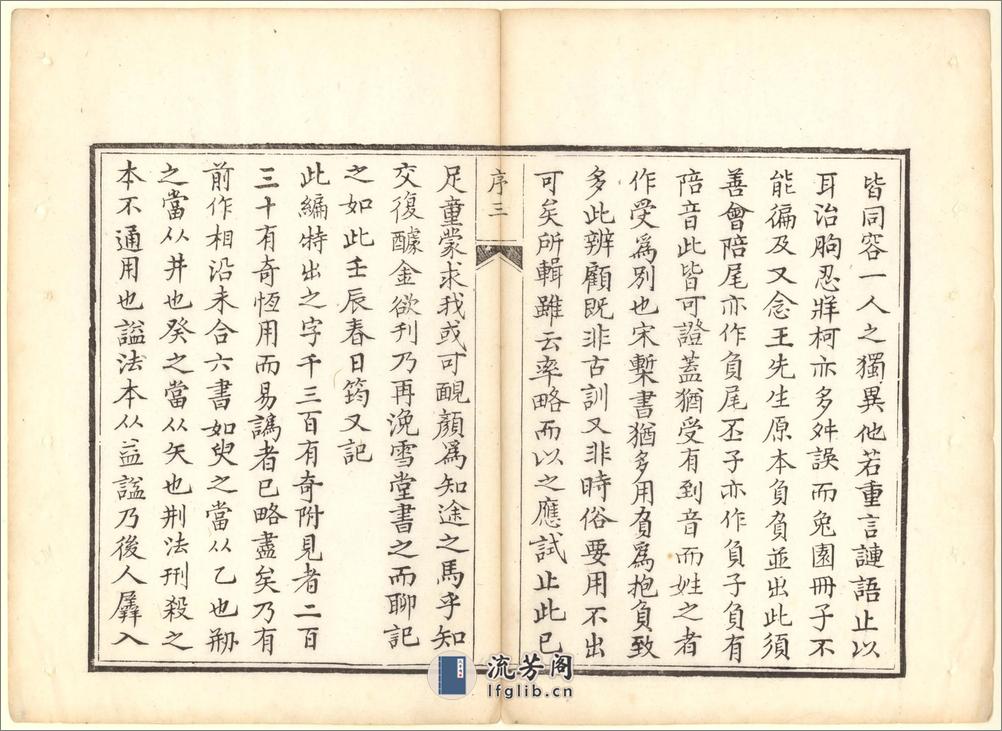 皆同容一人之獨異他若重言謰語止以
耳治朐忍牂柯亦多舛誤而兔園冊子不
能徧及又念王先生原本負負並出此須
善會陪尾亦作負尾丕子亦作負子負有
陪音此皆可證蓋猶受有到音而姓之者
作受爲別也宋槧書猶多用負爲抱負致
多此辨顧既非古訓又非時俗要用不出
可矣所輯雖云率略而以之應試止此已
序三
足童蒙求我或可靦顏爲知途之馬乎知
交復醵金欲刊乃再浼雪堂書之而聊記
之如此壬辰春日筠又記
此編特出之字千三百有奇附見者二百
三十有奇恆用而易譌者已略盡矣乃有
前作相沿未合六書如臾之當从乙也刱
之當从井也癸之當从矢也荆法刑殺之
本不通用也謚法本从益謚乃後人羼入
流芳阁
lfglib.cn